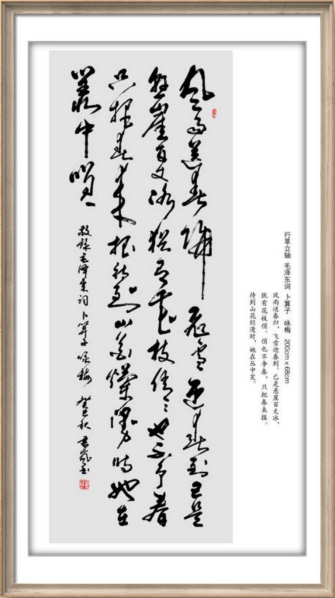 行草立轴 毛泽东词 卜算子 咏梅 200cm×68cm
风雨送春归，飞雪迎春到。已是悬崖百丈冰，
犹有花枝俏。俏也不争春，只把春来报。
待到山花烂漫时，她在丛中笑。
风雨送春归飞雪迎春到已是
悬崖百丈冰犹有花枝俏俏也不争春
只把春来报待到山花烂漫时她在
丛中笑
敬录毛泽东词卜算子咏梅 癸巳秋